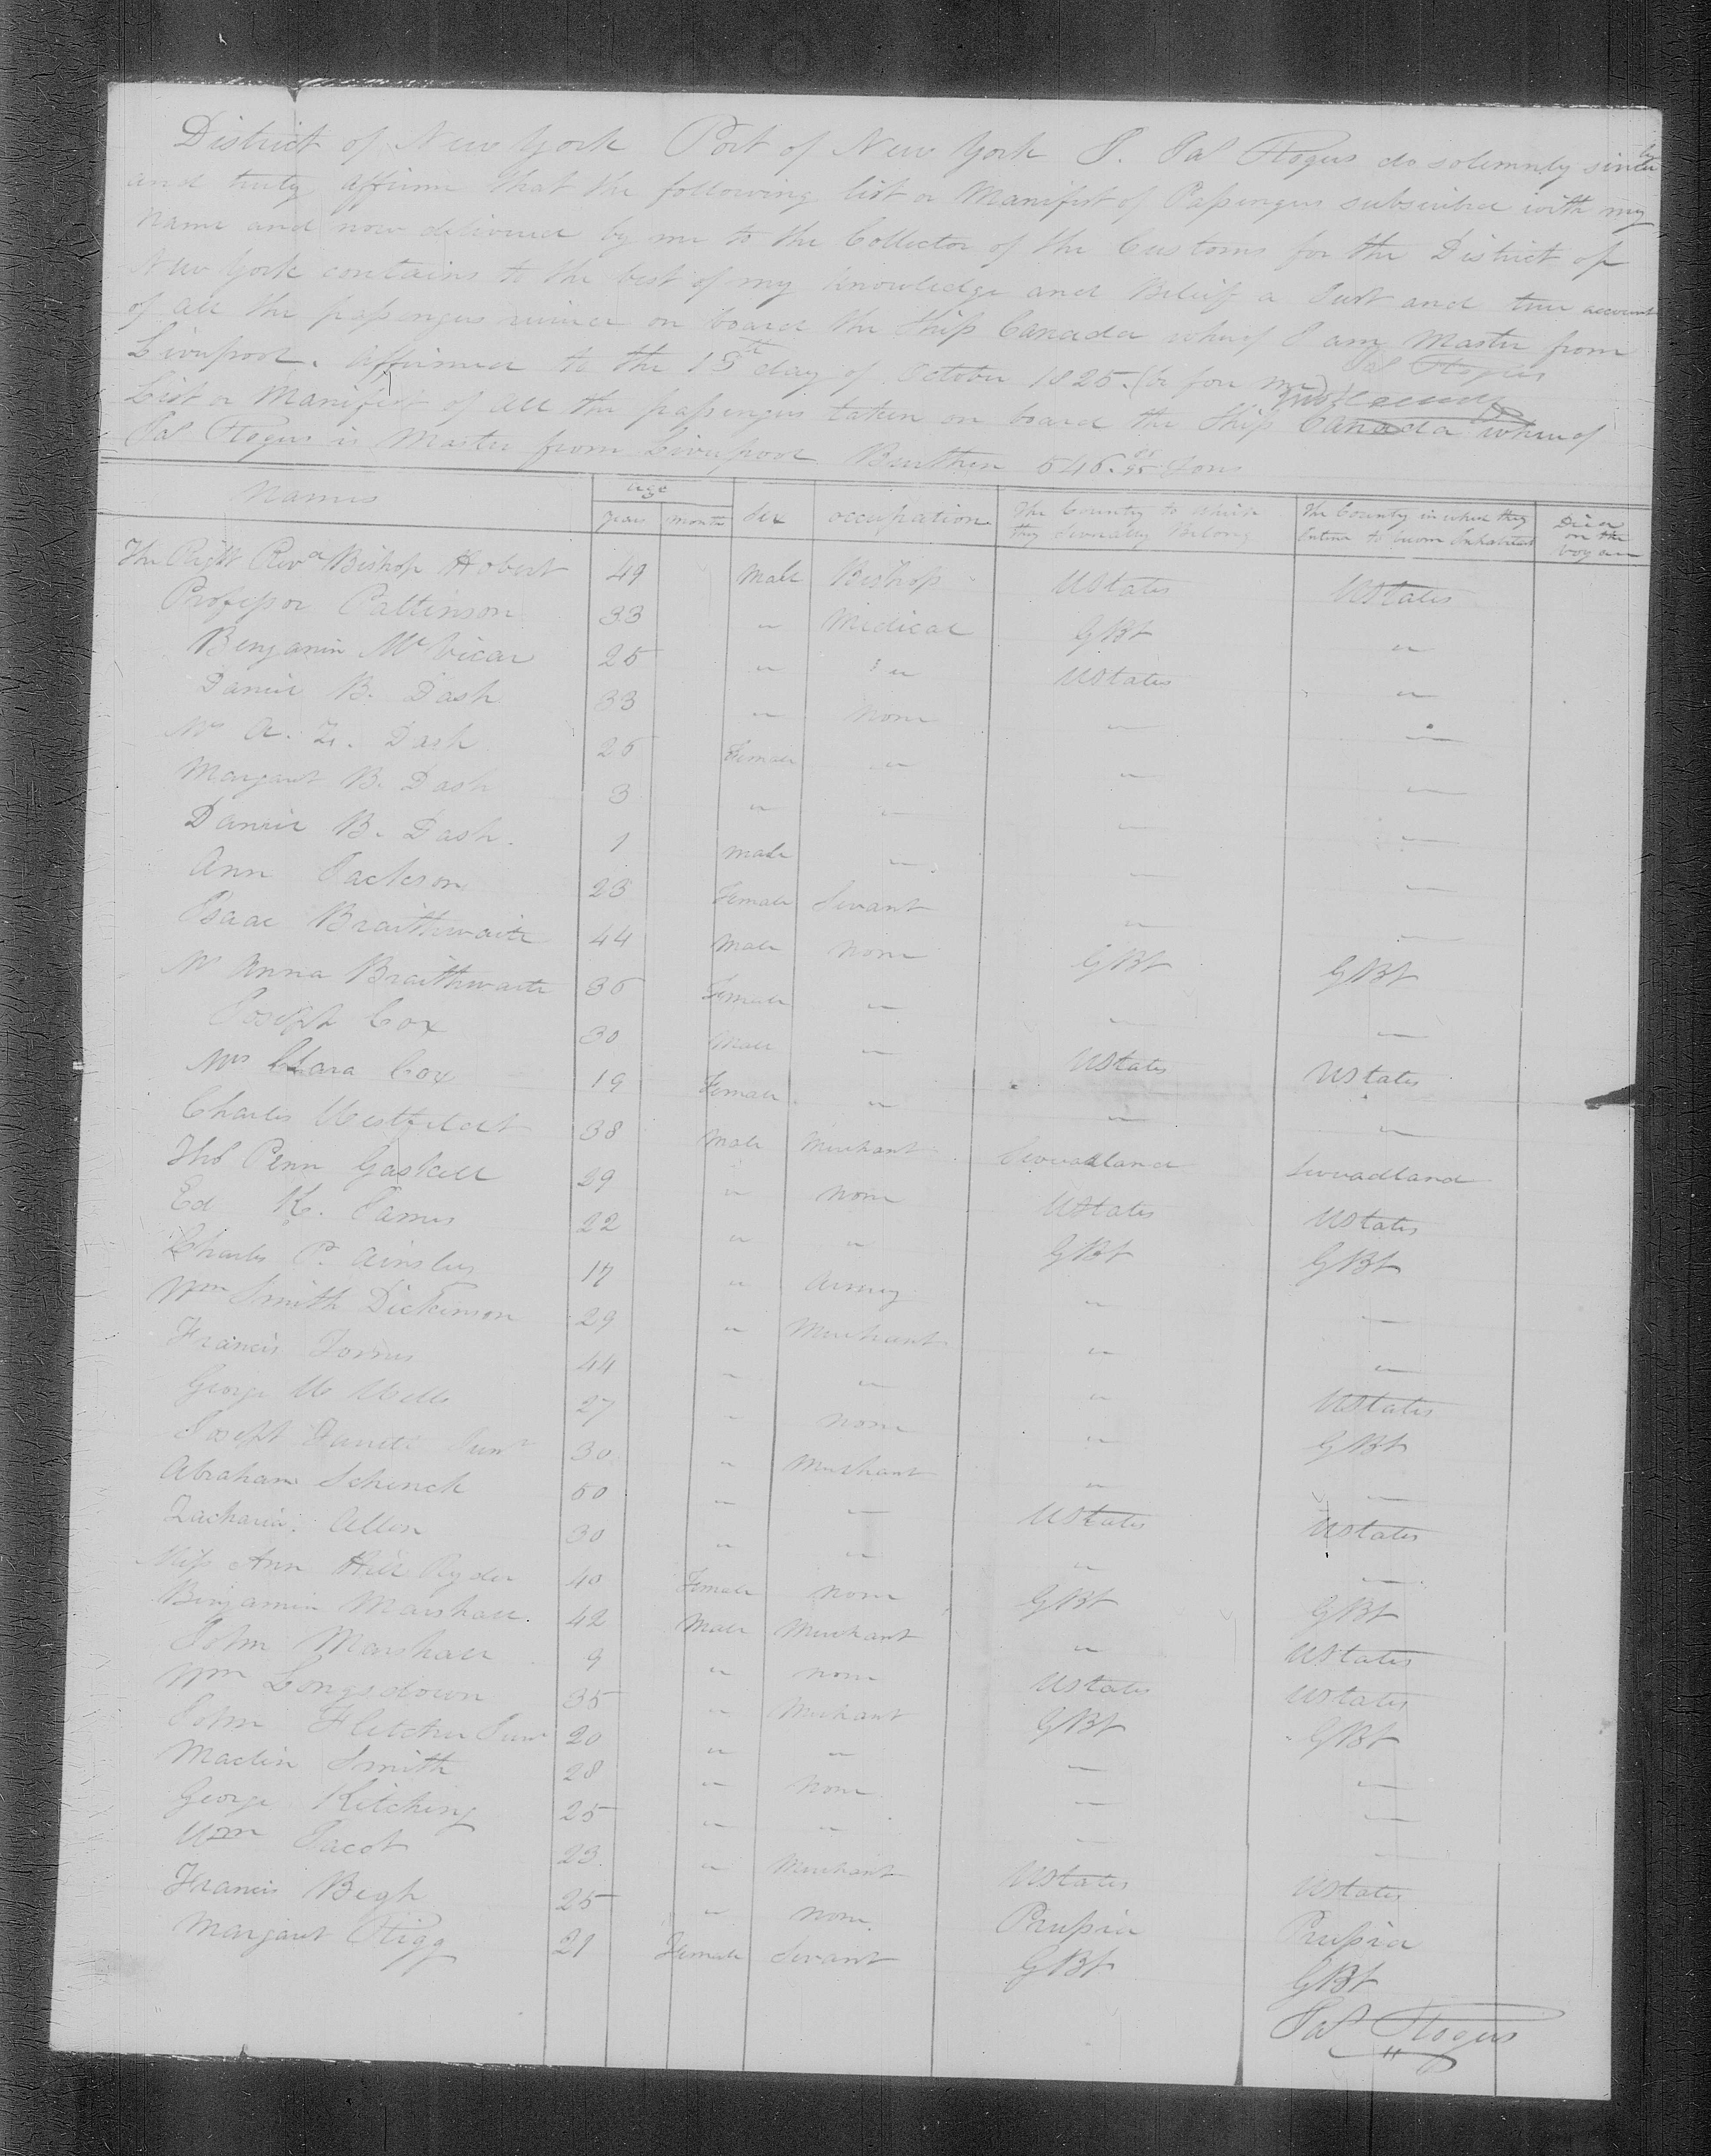 District of New York Port of New York I. Jas Rogers do solemnly sincerely
and truly affirm that the following list or Manifest of Passengers subscribed with my
name and now delivered by me to the Collector of the Customs for the District of
New York contains to the best of my knowledge and Belief a Just and true account
of all the passengers received on board the Ship Canada whereof I am Master from
Liverpool. affirmed to the 15th day of October 1825. (before me) Jas Rogers
List or Manifest of all the passengers taken on board the Ship Canada whereof
Jas Rogers is Master from Liverpool Burthen 546 Tons
Names age years month Sex occupation The Country to which they severally Belong The Country in which they Intend to become Inhabitants Died on the voyage
The Right Revd Bishop Hobert 49 Male Bishop UStates UStates
Professor Pattinson 33 " Medical GBt "
Benjamin McVicar 25 " " UStates "
Daniel B. Dash 33 " None " "
Mrs A. Z. Dash 25 Female " " "
Margaret B. Dash 3 " " " "
Daniel B. Dash. 1 male " " "
Ann Jackson 23 Female Servant " "
Isaac Braithwaite 44 Male None GBt GBt
Mrs Anna Braithwaite 36 Female " " "
Joseph Cox 30 Male " UStates UStates
Mrs Clara Cox 19 Female " " "
Charles Westfeldt 38 Male Merchant
Thos Penn Gaskell 29 " None UStates UStates
Ed K. James 22 " " GBt GBt
Charles P. Ainslies 17 " Army " "
Wm Smith Dickinson 29 " Merchant " "
Francis 44 " " " UStates
George W Wells 27 " None " GBt
Joseph Junr 30 " Merchant " "
Abraham Schenck 50 " " UStates UStates
Zacharia Allen 30 " " " "
Miss Ann Hill Ryder 40 Female None GBt GBt
Benjamin Marshall. 42 Male Merchant " UStates
John Marshall 9 " None UStates UStates
Wm Longsdown 35 " Merchant GBt GBt
John Fletcher Junr 20 " " " "
Maclin Smith 28 " None " "
George Kitching 25 " " " "
Wm Jacot 23 " Merchant UStates UStates
Francis Begh 25 " None. Prussia Prussia
Margaret Rigg 21 Female Servant GBt GBt
Jas Rogers